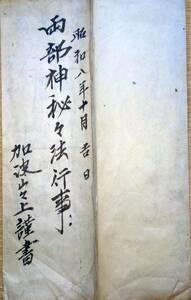 昭和八年十月吉日
両部神秘々法行事
加波山々上謹書